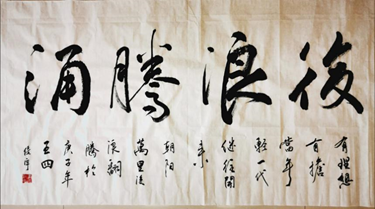 後浪騰涌
有理想
有擔
當年
輕一代
继往開
来
朝阳
萬里後
浪翻
騰於
庚子年
五四